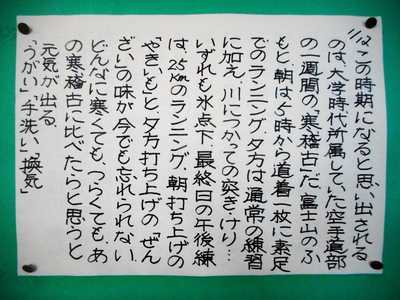 1/12 この時期になると思い出される
のは、大学時代所属していた空手道部
の一週間の「寒稽古」だ。富士山のふ
もと、朝は5時から道着一枚に素足
でのランニング、夕方は通常の練習
に加え、川につかっての突き・けり…。
いずれも氷点下、最終日の午後練
は、25Kmのランニング、朝打ち上げの
「やきいも」と、夕方打ち上げの「ぜん
ざい」の味が今でも忘れられない。
どんなに寒くても、つらくても、あ
の寒稽古に比べたらと思うと
元気が出る。
「うがい」「手洗い」「換気」